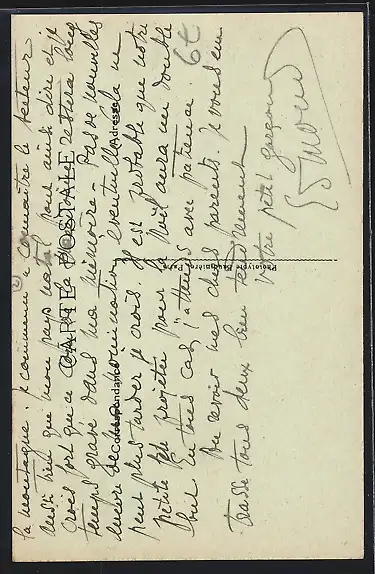 la montagne. Je commence à connaître le secteur
aussi bien que mon pays natal pour ainsi dire et je
crois est que ce restera longtemps
gravé dans ma mémoire. Pas de nouvelles
encore de ma nomination éventuelle, cela ne
peut plus tarder je crois. Il est probable que notre
petite fête projetée pour la Noël aura un double
but. En tous cas, j'attends avec patience.
Au revoir mes chers parents. Je vous embrasse
tous deux bien tendrement
Votre petit garçon
CARTE POSTALE
Correspondance
Adresse
Phototypie Baudinière, Paris
6€